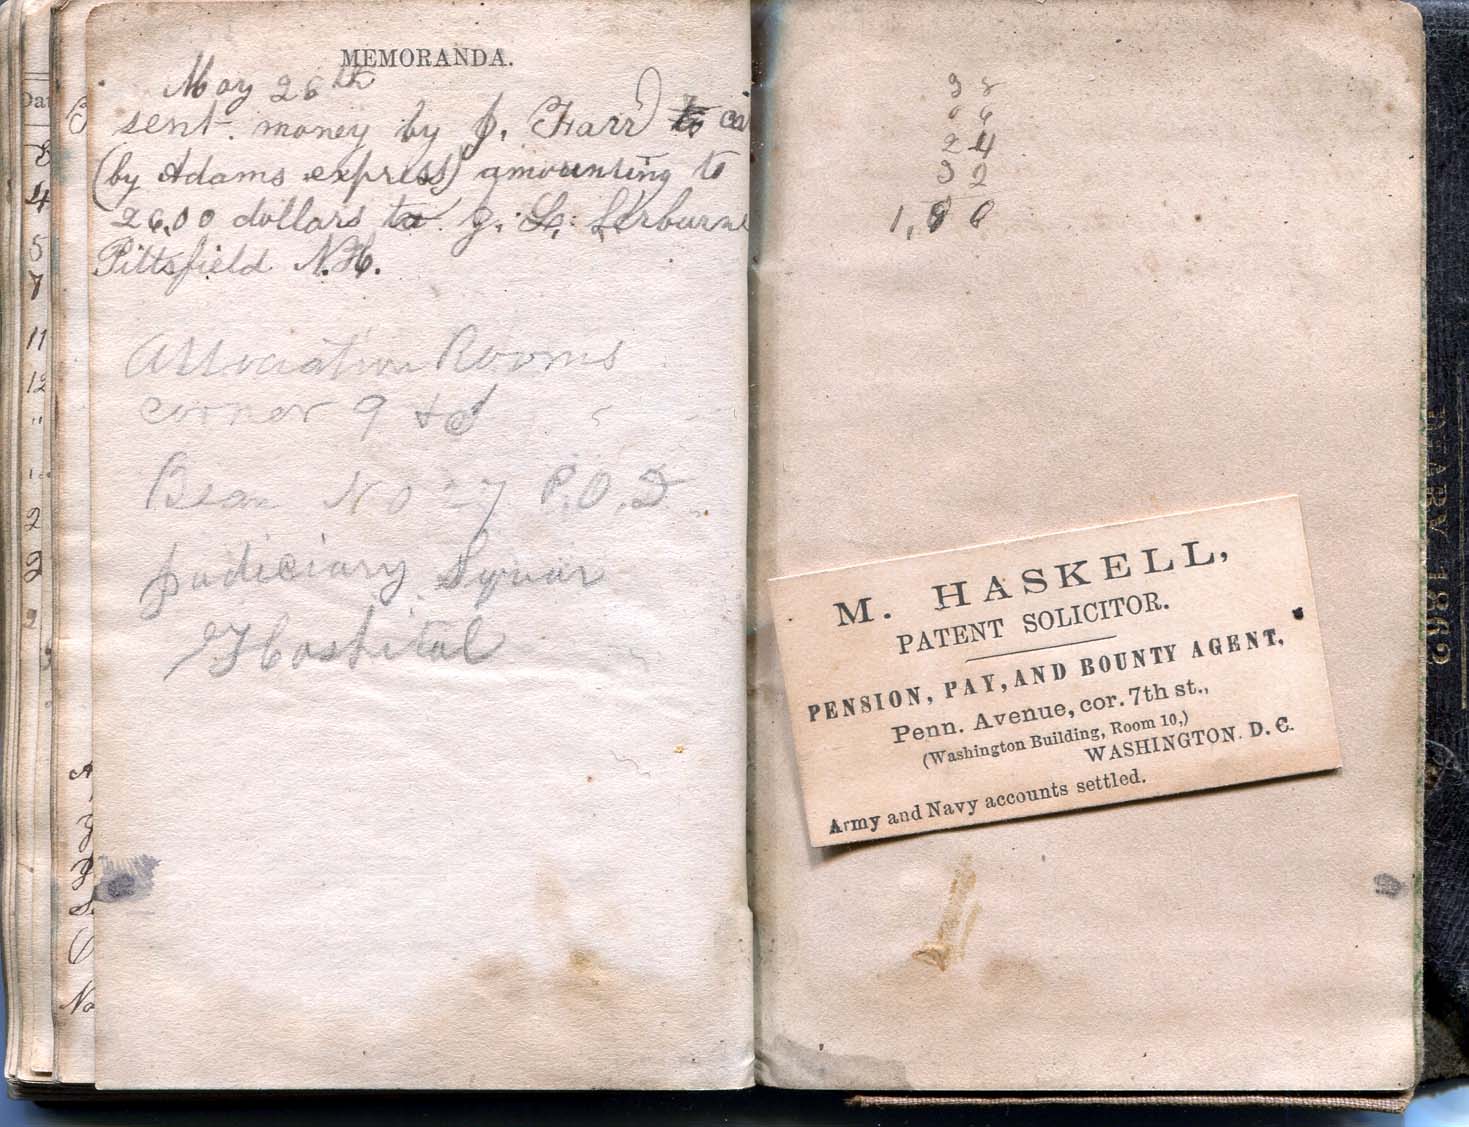 MEMORANDA.
May 26th
sent money by J. Farr to
(by Adams express) amounting to
26,00 dollars to J. L. Sherburne
Pittsfield N.H.
Association Rooms
corner 9 &
Bean No 27 P.O.D
Judiciary Squar
Hospital
24
32
M. HASKELL,
PATENT SOLICITOR.
PENSION, PAY, AND BOUNTY AGENT,
Penn. Avenue, cor. 7th st.,
(Washington Building, Room 10,)
WASHINGTON. D. C.
Army and Navy accounts settled.
Dat
8
4
5
7
11
12
"
2
2
A
No
DIARY 1862